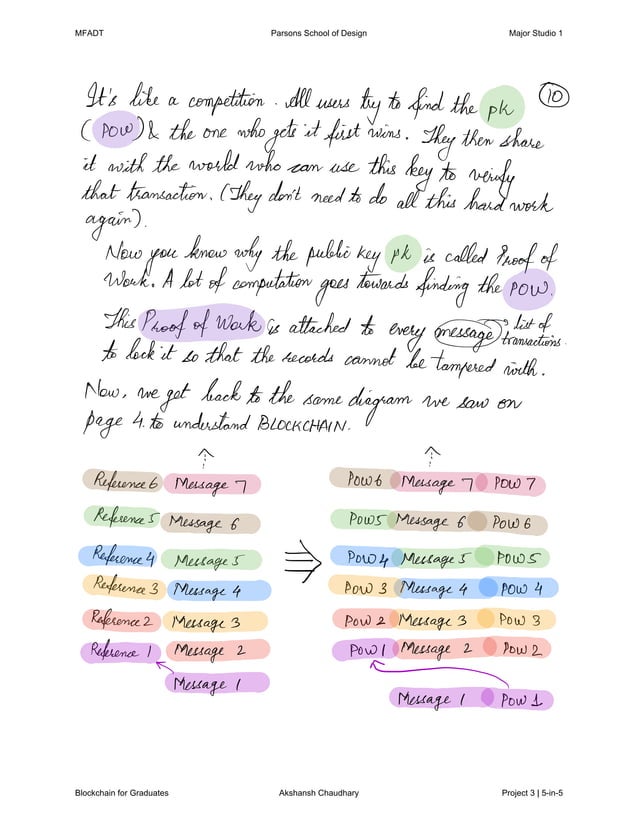 MFADT Parsons School of Design Major Studio 1
It's like a competition. All users try to find the pk 10
(POW) & the one who gets it first wins. They then share
it with the world who can use this key to verify
that transaction. (They don't need to do all this hard work
again).
Now you know why the public key pk is called Proof of
Work. A lot of computation goes towards finding the POW.
This Proof of Work is attached to every message → list of transactions.
to lock it so that the records cannot be tampered with.
Now, we get back to the same diagram we saw on
page 4. to understand BLOCKCHAIN.
Reference 6 Message 7
Reference 5 Message 6
Reference 4 Message 5
Reference 3 Message 4
Reference 2 Message 3
Reference 1 Message 2
Message 1
POW 6 Message 7 POW 7
POW 5 Message 6 POW 6
POW 4 Message 5 POW 5
POW 3 Message 4 POW 4
POW 2 Message 3 POW 3
POW 1 Message 2 POW 2
Message 1 POW 1
Blockchain for Graduates Akshansh Chaudhary Project 3 | 5-in-5